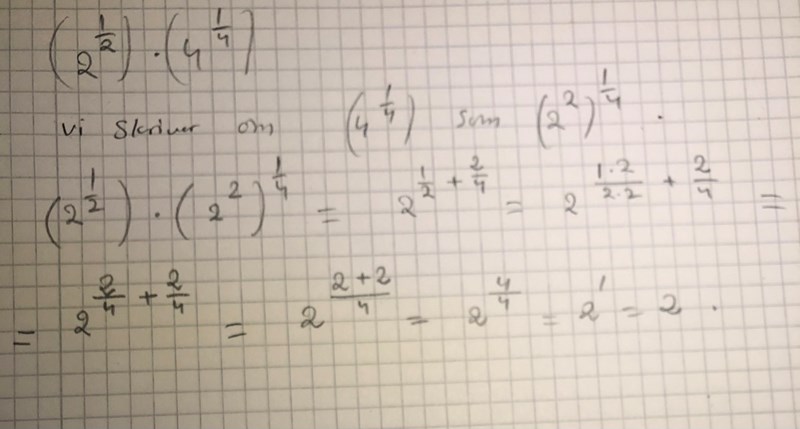 (2^{1/2}) · (4^{1/4})
vi skriver om (4^{1/4}) som (2^2)^{1/4} .
(2^{1/2}) · (2^2)^{1/4} = 2^{1/2 + 2/4} = 2^{1·2/2·2 + 2/4} =
= 2^{2/4 + 2/4} = 2^{2+2/4} = 2^{4/4} = 2^1 = 2 .